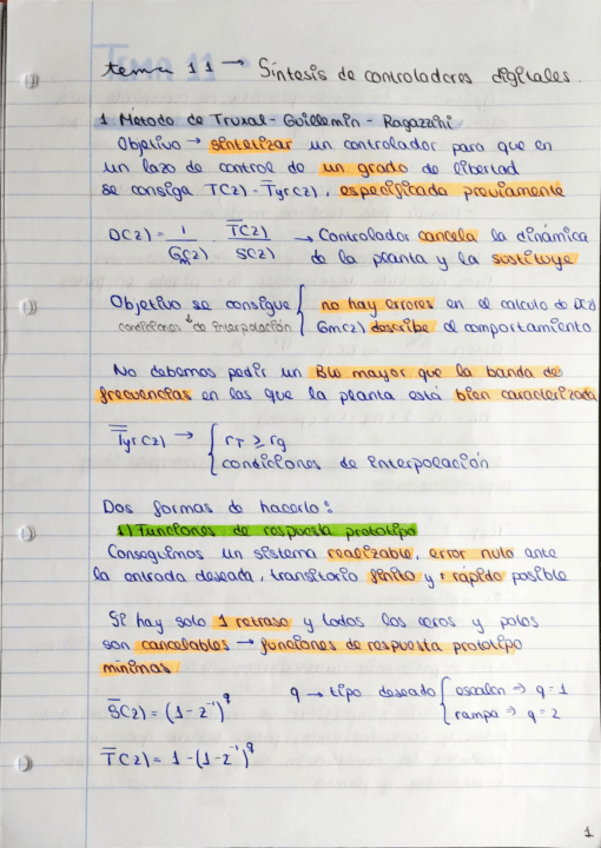 tema 11 → Síntesis de controladores digitales.
1. Método de Truxal - Guillemin - Ragazzini
Objetivo → sintetizar un controlador para que en
un lazo de control de un grado de libertad
se consiga T(z) = T̅yr(z), especificada previamente
D(z) = 1/Gm(z) · T̅(z)/S̅(z) → Controlador cancela la dinámica
de la planta y la sustituye
Objetivo se consigue { no hay errores en el calculo de D(z)
condiciones de interpolación Gm(z) describe el comportamiento
No debemos pedir un BW mayor que la banda de
frecuencias en las que la planta está bien caracterizada
T̅yr(z) → { rT ≥ rg
condiciones de interpolación
Dos formas de hacerlo:
1) Funciones de respuesta prototipo
Conseguimos un sistema realizable, error nulo ante
la entrada deseada, transitorio finito y + rápido posible
Si hay solo 1 retraso y todos los ceros y polos
son cancelables → funciones de respuesta prototipo
mínimas.
S̅(z) = (1-z⁻¹)^q q → tipo deseado { escalon → q = 1
rampa → q = 2
T̅(z) = 1-(1-z⁻¹)^q
1